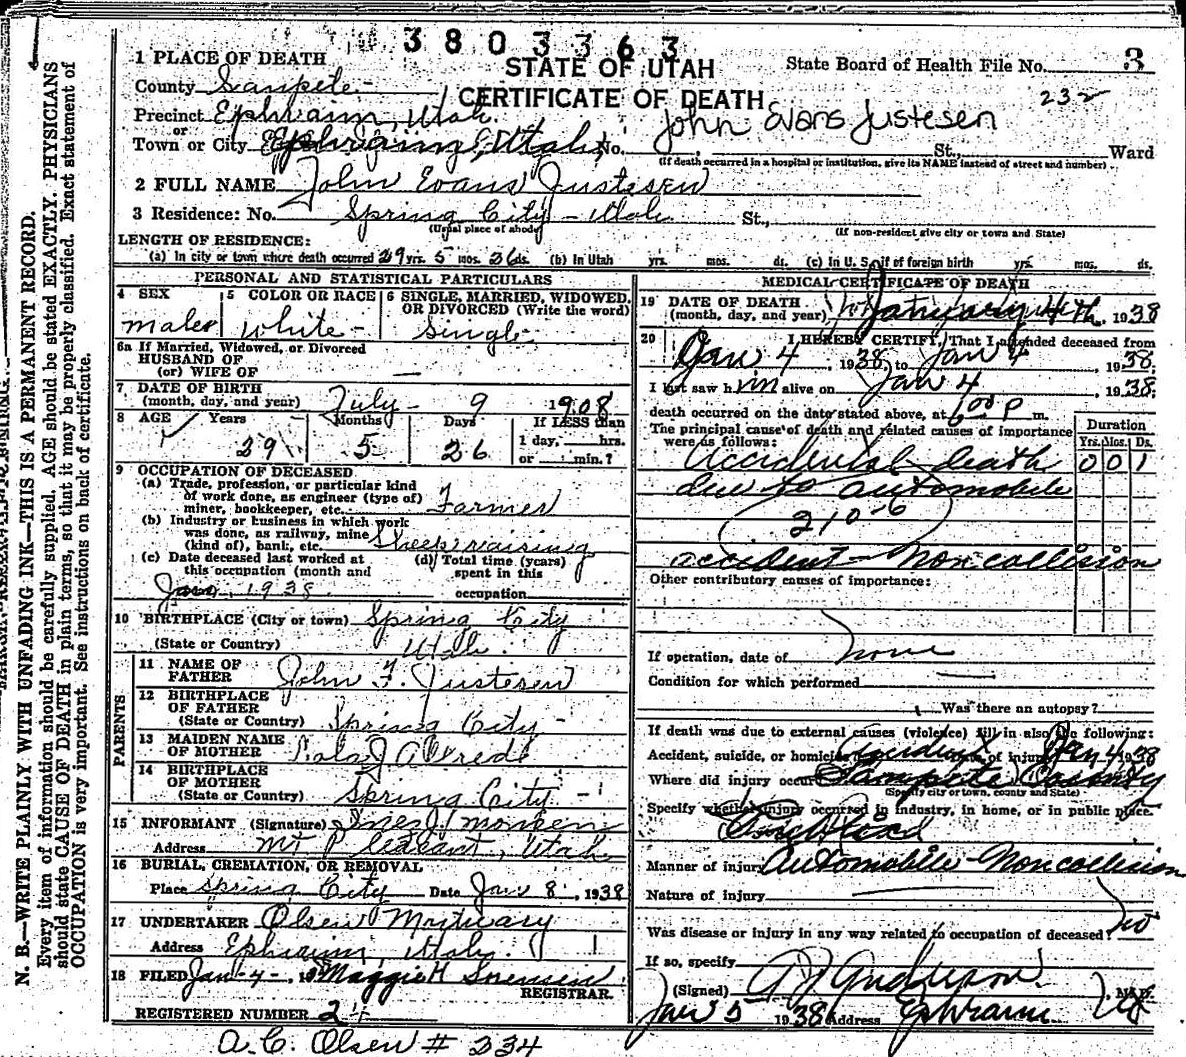 3803363
STATE OF UTAH
CERTIFICATE OF DEATH
State Board of Health File No. 3
232
1 PLACE OF DEATH
County Sanpete
Precinct Ephraim, Utah.
or
Town or City Ephraim, Utah, No. St., Ward
John Evans Justesen
(If death occurred in a hospital or institution, give its NAME instead of street and number)
2 FULL NAME John Evans Justesen
3 Residence: No. Spring City - Utah St.,
(Usual place of abode) (If non-resident give city or town and State)
LENGTH OF RESIDENCE:
(a) In city or town where death occurred 29 yrs. 5 mos. 26 ds. (b) In Utah yrs. mos. ds. (c) In U. S. if of foreign birth yrs. mos. ds.
PERSONAL AND STATISTICAL PARTICULARS
4 SEX
male
5 COLOR OR RACE
White
6 SINGLE, MARRIED, WIDOWED, OR DIVORCED (Write the word)
Single
6a If Married, Widowed, or Divorced
HUSBAND OF
(or) WIFE OF
7 DATE OF BIRTH
(month, day, and year) July 9 1908
8 AGE Years Months Days If LESS than
29 5 26 1 day, hrs.
or min.?
9 OCCUPATION OF DECEASED
(a) Trade, profession, or particular kind
of work done, as engineer (type of)
miner, bookkeeper, etc. Farmer
(b) Industry or business in which work
was done, as railway, mine
(kind of), bank, etc. Sheep raising
(c) Date deceased last worked at
this occupation (month and
Jan. 1938
(d) Total time (years)
spent in this
occupation
10 BIRTHPLACE (City or town) Spring City
(State or Country) Utah.
PARENTS
11 NAME OF
FATHER John F. Justesen
12 BIRTHPLACE
OF FATHER
(State or Country) Spring City -
13 MAIDEN NAME
OF MOTHER J Allred
14 BIRTHPLACE
OF MOTHER
(State or Country) Spring City -
15 INFORMANT (Signature) Inez J
Address Mt Pleasant, Utah
16 BURIAL, CREMATION, OR REMOVAL
Place Spring City Date Jan 8, 1938
17 UNDERTAKER Olsen Mortuary
Address Ephraim, Utah.
18 FILED Jan-4-, 19 Maggie H Sorensen
REGISTRAR.
REGISTERED NUMBER 24
A. C. Olsen # 334
MEDICAL CERTIFICATE OF DEATH
19 DATE OF DEATH
(month, day, and year) January 4th. 1938
20 I HEREBY CERTIFY, That I attended deceased from
Jan 4, 1938, to Jan 4, 1938;
I last saw him alive on Jan 4, 1938;
death occurred on the date stated above, at 6:00 P m.
The principal cause of death and related causes of importance
were as follows:
Duration
Yrs. Mos. Ds.
Accidental death 0 0 1
due to automobile
210-6
accident - Non collision
Other contributory causes of importance:
If operation, date of none
Condition for which performed
Was there an autopsy?
If death was due to external causes (violence) fill in also the following:
Accident, suicide, or homicide Accident of injury Jan 4 1938
Where did injury occur Sanpete County
(Specify city or town, county and State)
Specify whether injury occurred in industry, in home, or in public place.
Manner of injury Automobile - Non collision
Nature of injury
Was disease or injury in any way related to occupation of deceased? no
If so, specify
(Signed) Anderson M.D.
Jan 5 1938 Address Ephraim, Ut
N. B.—WRITE PLAINLY WITH UNFADING INK—THIS IS A PERMANENT RECORD.
Every item of information should be carefully supplied. AGE should be stated EXACTLY. PHYSICIANS
should state CAUSE OF DEATH in plain terms, so that it may be properly classified. Exact statement of
OCCUPATION is very important. See instructions on back of certificate.